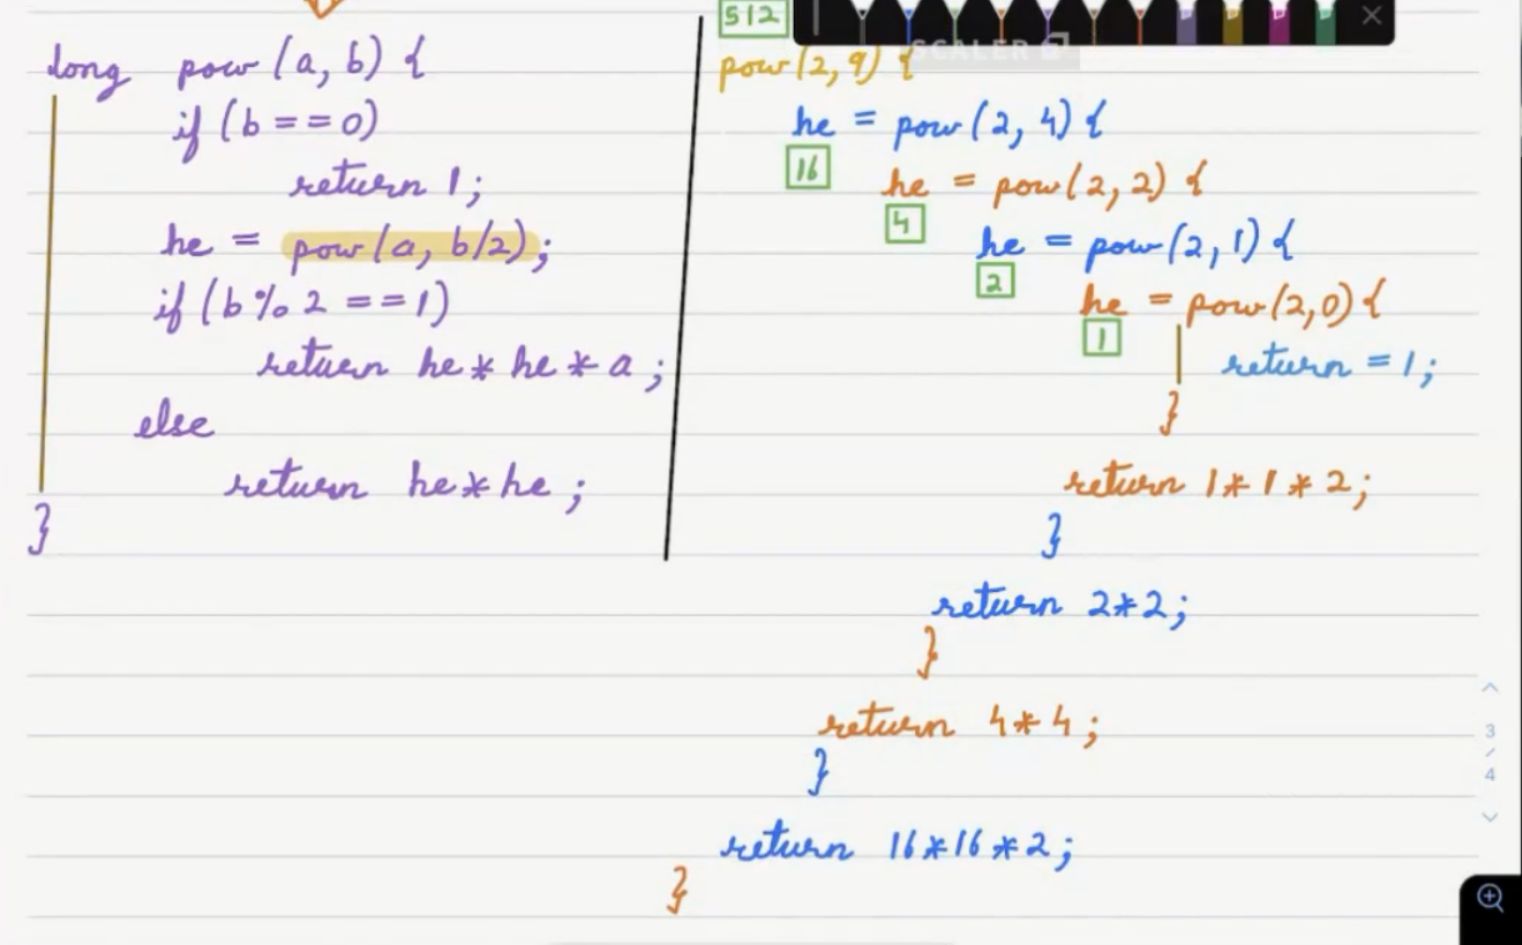 long pow (a, b) {
if (b == 0)
return 1;
he = pow (a, b/2);
if (b % 2 == 1)
return he * he * a ;
else
return he * he ;
}
512
SCALER
pow (2, 9) {
he = pow (2, 4) {
16
he = pow (2, 2) {
4
he = pow (2, 1) {
2
he = pow (2, 0) {
1
return = 1;
}
return 1 * 1 * 2;
}
return 2 * 2;
}
return 4 * 4 ;
}
return 16 * 16 * 2 ;
}
3
/
4